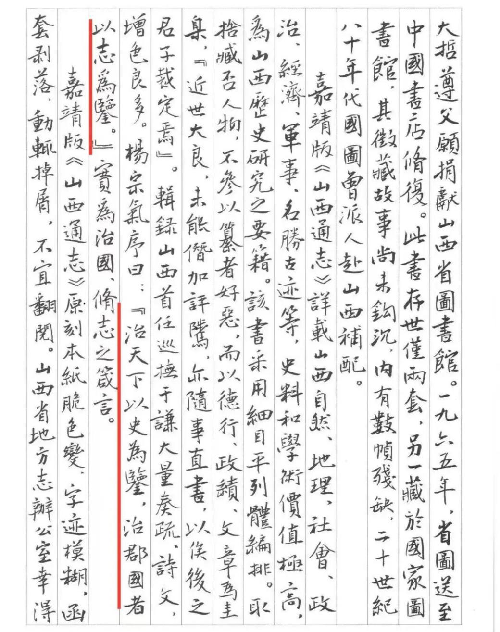 大哲遵父願捐獻山西省圖書館。一九六五年,省圖送至
中國書店脩復。此書存世僅兩套,另一藏於國家圖
書館,其徵藏故事尚未鈎沉,内有數幀殘缺,二十世紀
八十年代國圖曾派人赴山西補配。
嘉靖版《山西通志》詳載山西自然、地理、社會、政
治、經濟、軍事、名勝古迹等,史料和學術價值極高,
為山西歷史研究之要籍。該書采用細目平列體編排。取
捨臧否人物,不參以纂者好惡,而以德行、政績、文章為圭
臬,『近世大良,未能僭加評騭,亦隨事直書,以俟後之
君子裁定焉』。輯録山西首任巡撫于謙大量奏疏、詩文,
增色良多。楊宗氣序曰:『治天下以史為鑒,治郡國者
以志為鑒。』實為治國、脩志之箴言。
嘉靖版《山西通志》原刻本紙脆色變、字迹模糊,函
套剥落,動輒掉屑,不宜翻閲。山西省地方志辦公室幸得